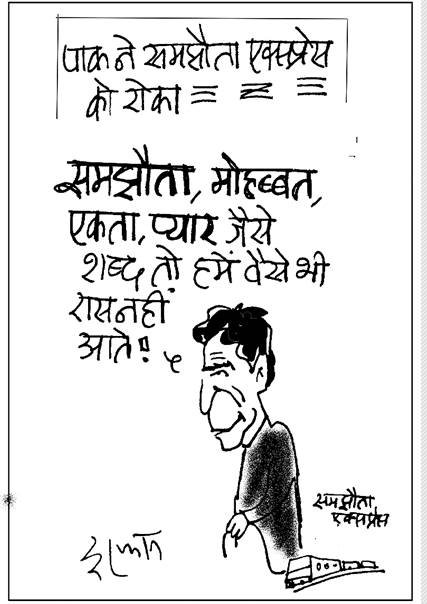 पाक ने समझौता एक्सप्रेस
को रोका
समझौता, मोहब्बत,
एकता, प्यार जैसे
शब्द तो हमें वैसे भी
रास नहीं
आते!
समझौता
एक्सप्रेस